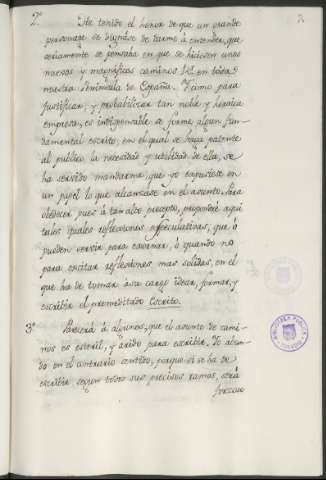 2.º He tenido el honor de que un grande
personage se dignase de darme à entender, que
seriamente se pensaba en que se hiciesen unos
nuevos y magnificos caminos Rs. en toda
nuestra Peninsula de España. Y como para
justificar, y probabilizar tan noble y heroica
empresa, es indispensable se forme algun fun-
damental escrito, en el qual se haga patente
al publico la necesidad y utilidad de ella, se
ha servido mandarme, que yo expusiese en
un papel lo que alcanzase en el asunto. Para
obedecer pues à tan alto precepto, propondré aqui
tales quales reflexiones especulativas, que ó
pueden servir para continuar, ò quando no
para excitar reflexiones mas solidas, en el
que ha de tomar à su cargo idear, formar, y
escribir el premeditado Escrito.
3.º Parecerá à algunos, que el asunto de cami-
nos es esteril, y arido para escribir. Yo abun-
do en el contrario sentido, porque si se ha de
escribir segun todos sus precisos ramos, será
forzoso